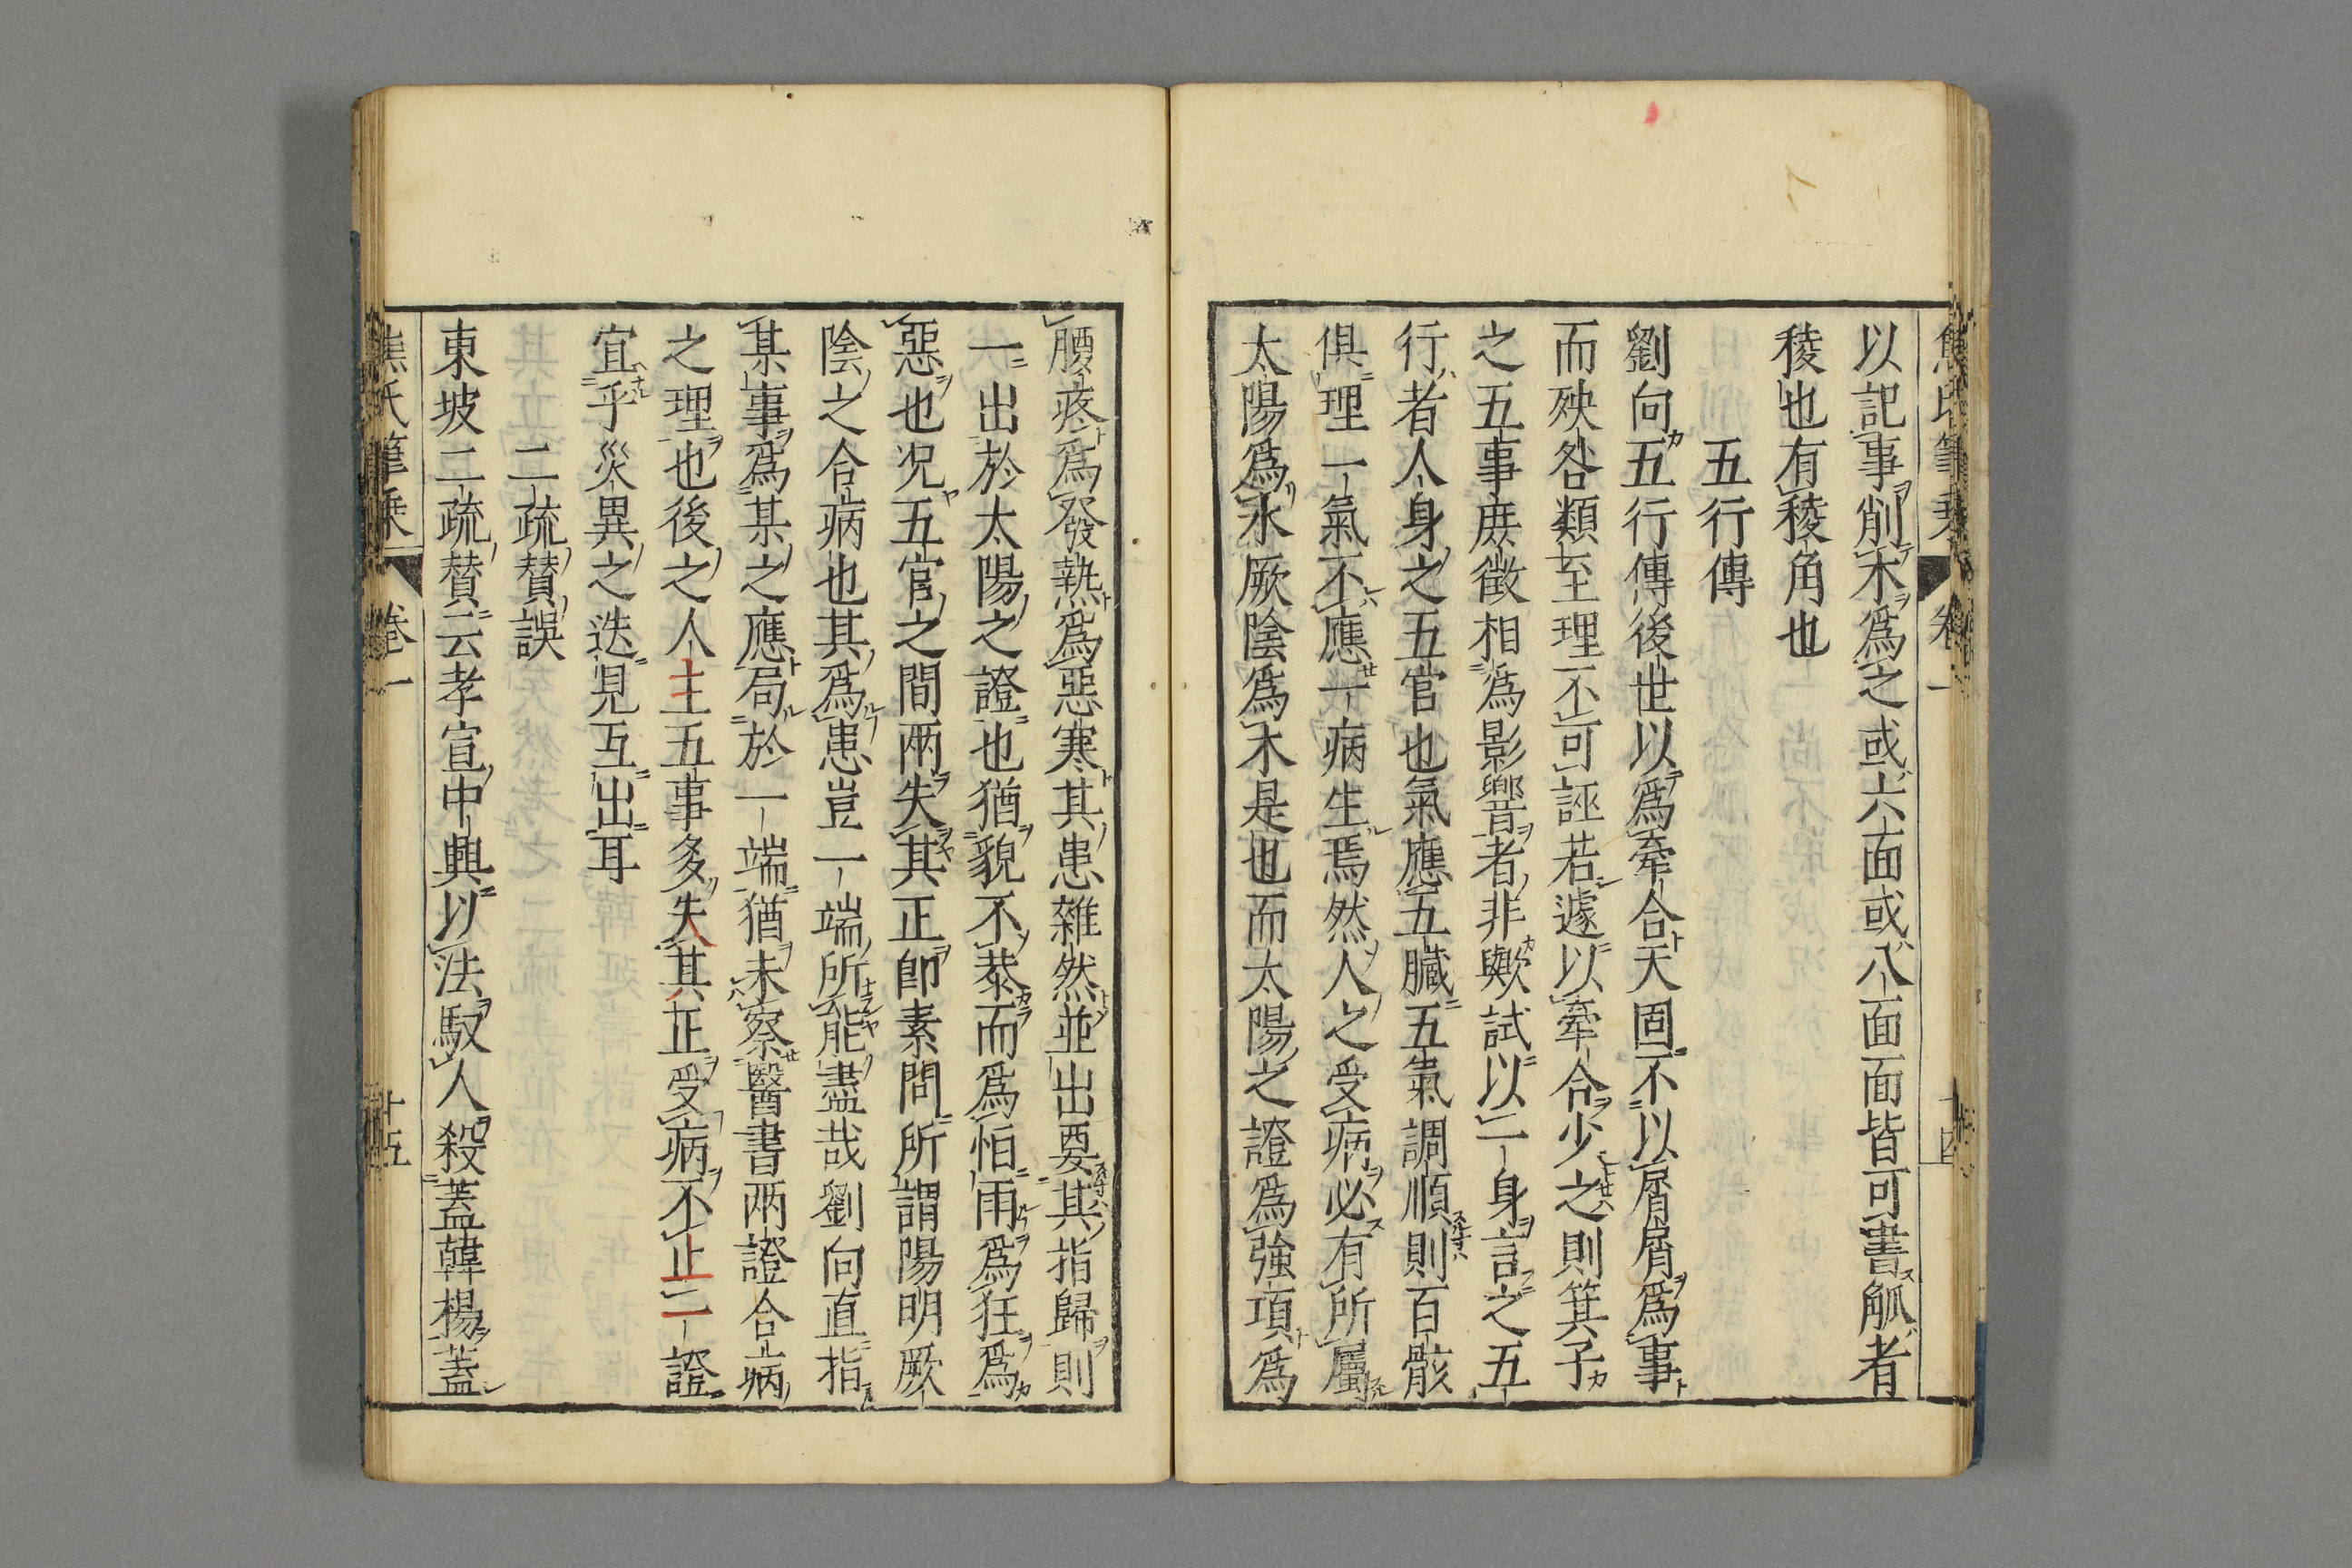 焦氏筆乗 卷一 十四
以記事削木爲之或六面或八面面皆可書觚者
稜也有稜角也
五行傳
劉向五行傳後世以爲牽合天固不以屑屑爲事
而殃咎類至理不可誣若遽以牽合少之則箕子
之五事庶徵相爲影響者非歟試以一身言之五
行者人身之五官也氣應五臟五氣調順則百骸
俱理一氣不應一病生焉然人之受病必有所屬
太陽爲水厥陰爲木是也而太陽之證爲強項爲
腰疼爲發熱爲惡寒其患雜然並出要其指歸則
一出於太陽之證也猶貌不恭而爲怕雨爲狂爲
惡也况五官之間兩失其正即素問所謂陽明厥
陰之合病也其爲患豈一端所能盡哉劉向直指
某事爲某之應局於一端猶未察醫書兩證合病
之理也後之人主五事多失其正受病不止一證
宜乎災異之迭見互出耳
二疏賛誤
東坡二疏賛云孝宣中興以法馭人殺蓋韓楊蓋
焦氏筆乗 卷一 十五